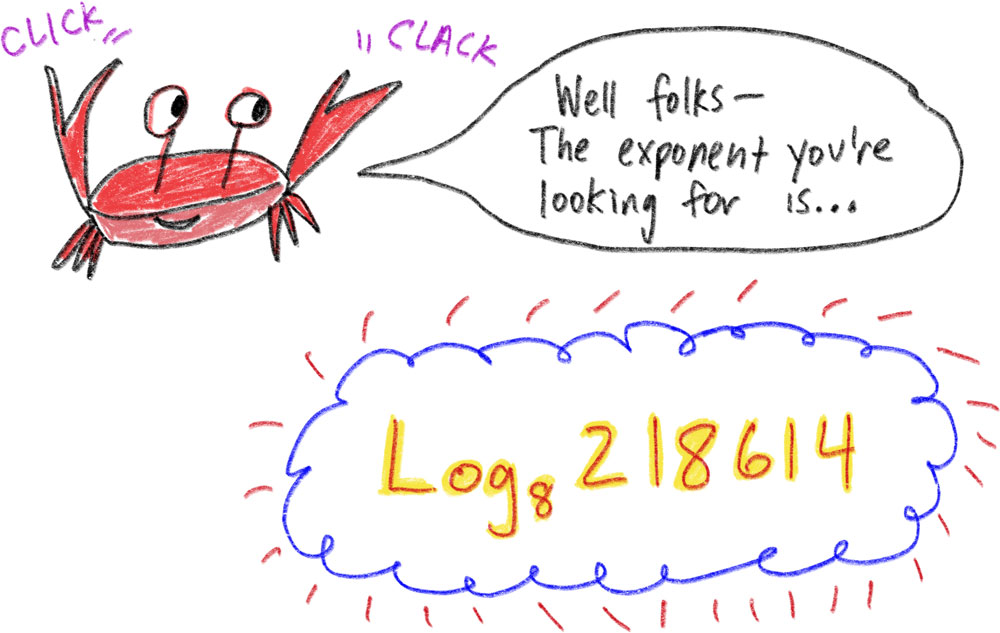 CLICK
CLACK
Well folks—
The exponent you're
looking for is...
Log₈ 218614